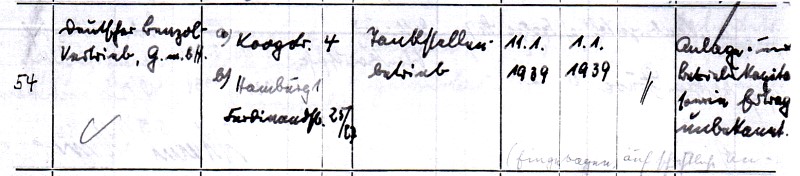 54
Deutscher Benzol-
Vertrieb, G.m.b.H.
a) Koogstr. 4
b) Hamburg 1
Ferdinandstr. 25/27
Tankstellen-
betrieb
11.1.
1939
1.1.
1939
"
Anlage- und
Betriebskapita
sowie Ertrag
unbekannt.
(Eingetragen auf